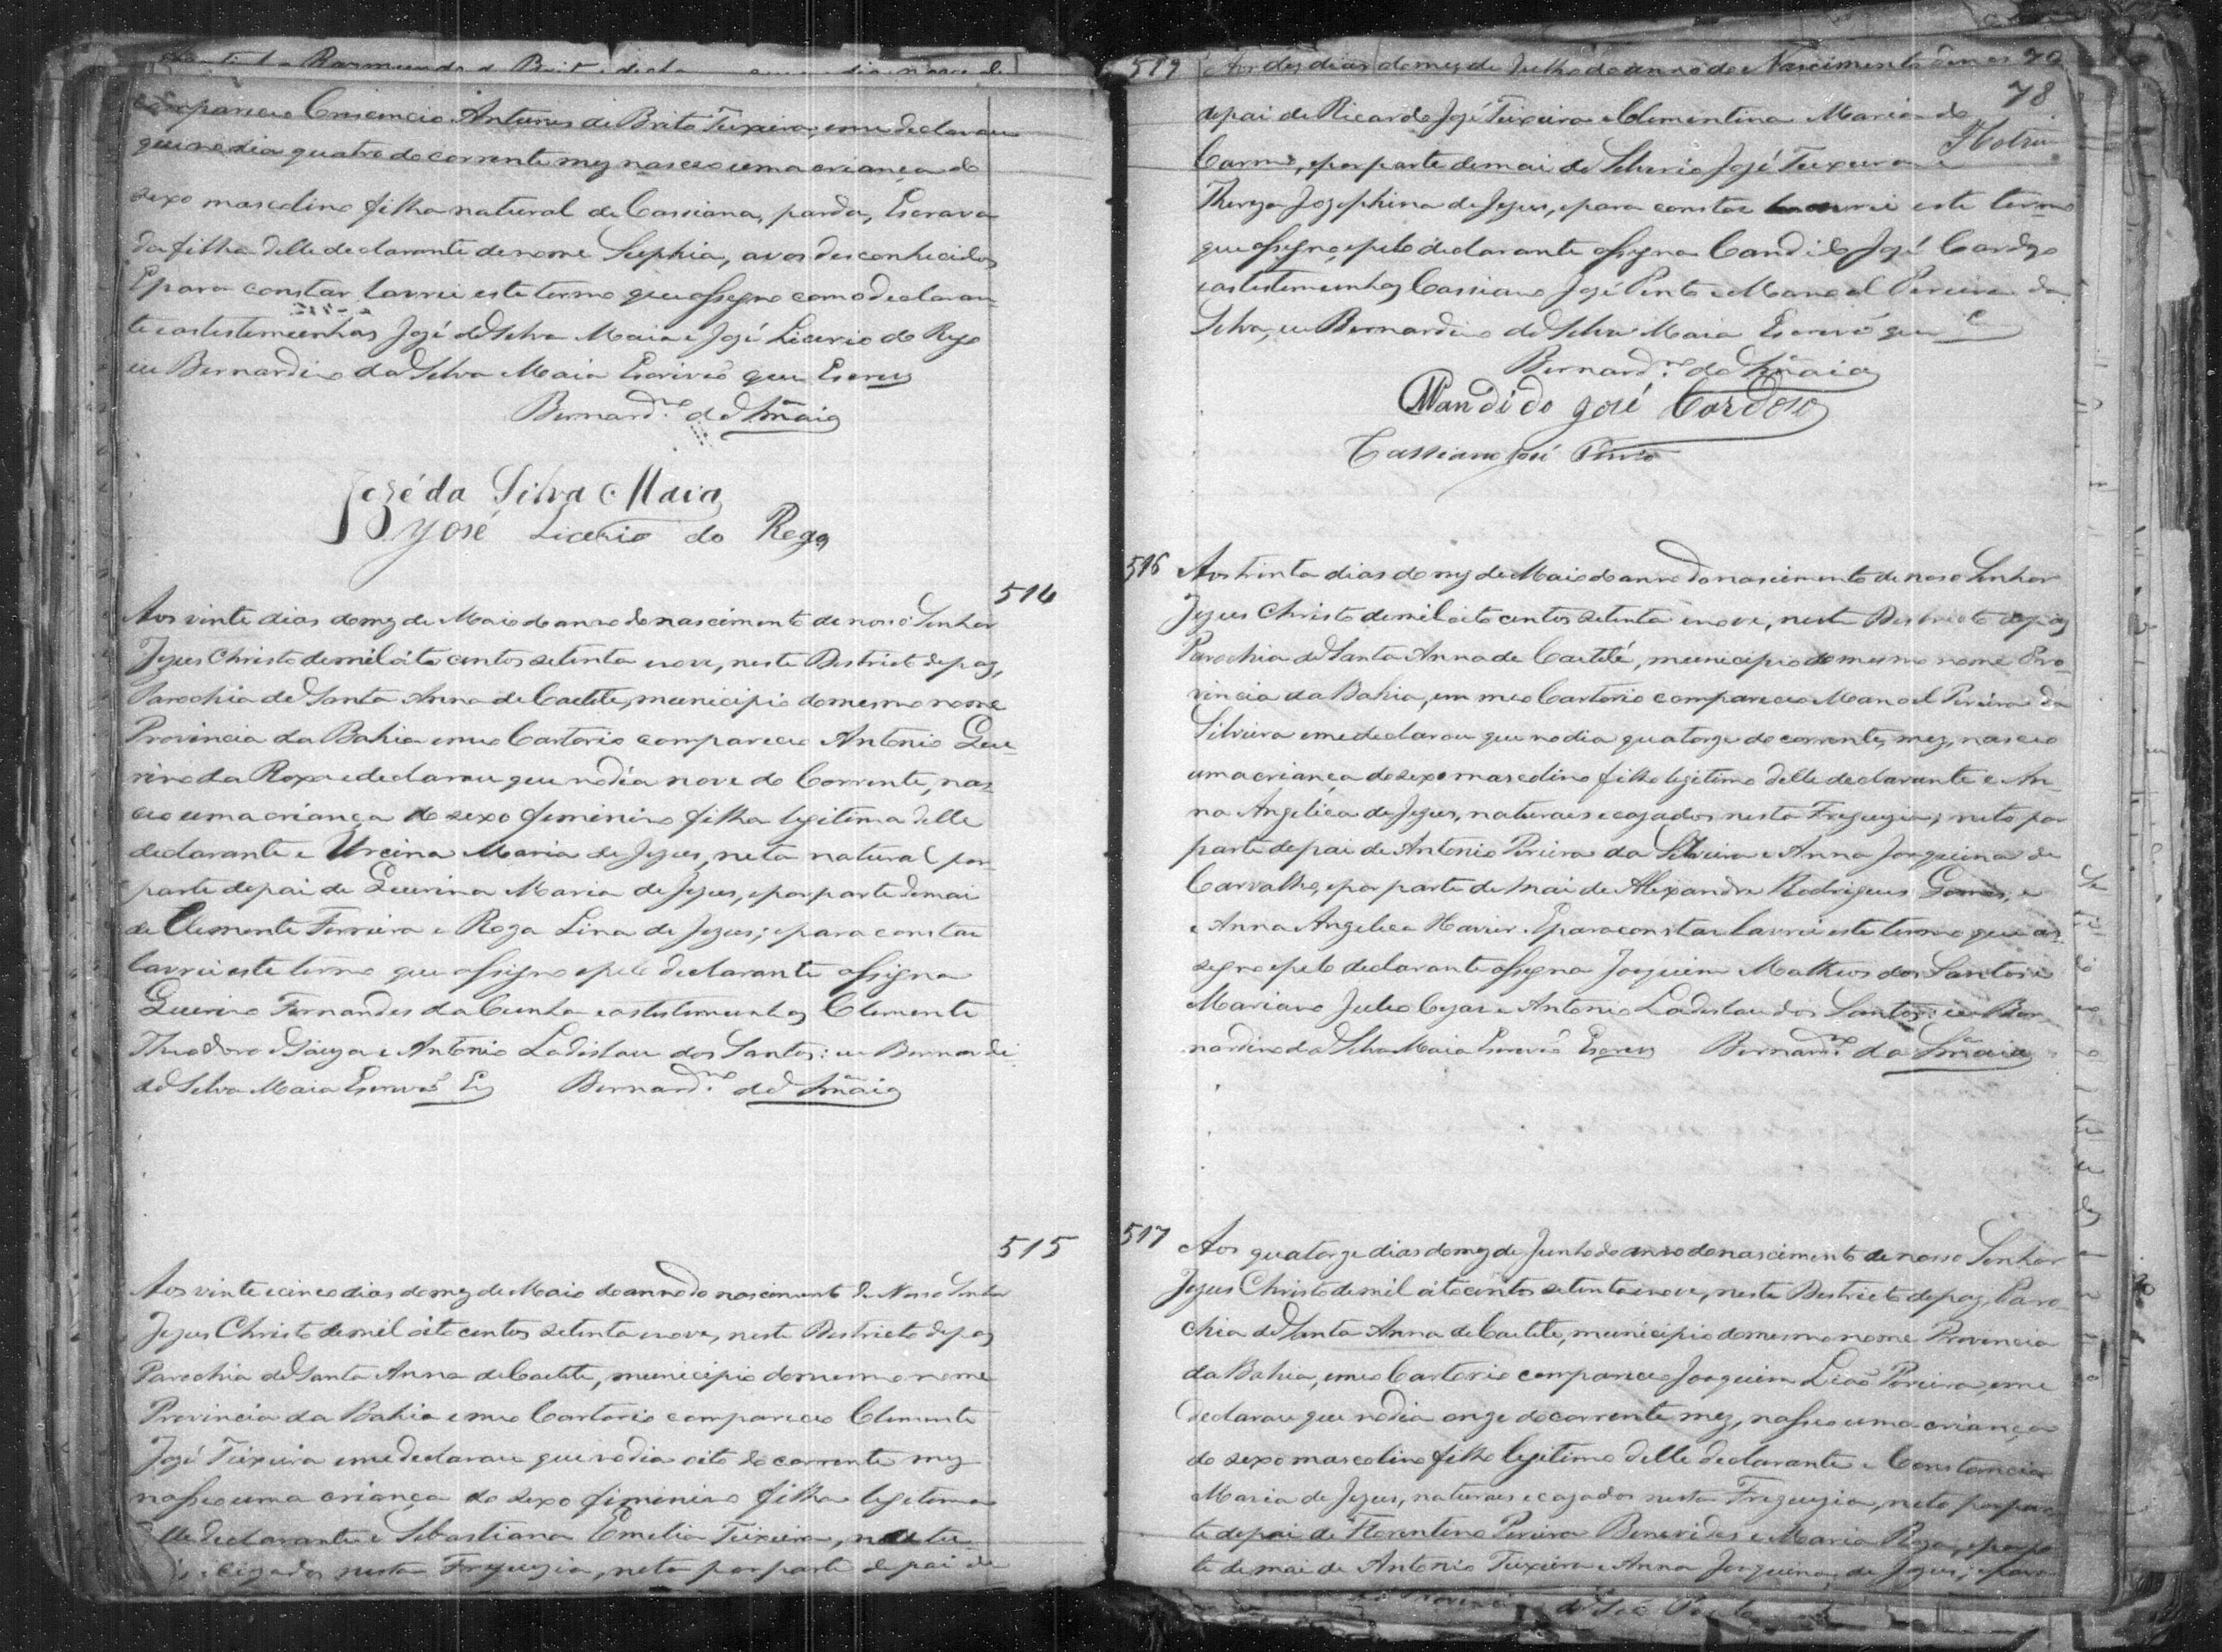 Raimundo de Brit
compareceo Cresencio Antunes de Brito Teixeira, e me declarou
que no dia quatro do corrente mez nasceo uma criança do
sexo mascolino filha natural de Cassiana, parda, Escrava
da filha delle declarante de nome Sophia, avos desconhecidos
E para constar lavrei este termo que assigno com o declaran
te e as testemunhas José da Silva Maia e José Licerio do Rego
eu Bernardino da Silva Maia Escrivão que Escrevy
Bernardno da Sa Maia
José da Silva Maia
José Licerio do Rego
514
Aos vinte dias do mez de Maio do anno do nascimento de nosso Senhor
Jezus Christo de mil oito centos setenta e nove, neste Destricto de paz,
Parochia de Santa Anna de Caetite, municipio do mesmo nome
Provincia da Bahia em meo Cartorio compareceo Antonio Que
rino da Roxa e declarou que no dia nove do Corrente, nas
ceo uma criança do sexo feminino filha legitima delle
declarante e Urcina Maria de Jezus, neta natural por
parte de pai de Querina Maria de Jezus, e por parte de mai
de Clemente Ferreira e Roza Lina de Jezus; e para constar
lavrei este termo que assigno e pelo declarante assigna
Querino Fernandes da Cunha e as testemunhas Clemente
Theodoro de Souza e Antonio Ladislau dos Santos: eu Bernardi
da Silva Maia Escrivão Ey Bernardno da Sa Maia
515
Aos vinte e cinco dias do mez de Maio do anno do nascimento de Nosso Senhor
Jezus Christo de mil oito centos setenta e nove, neste Destricto de paz
Parochia de Santa Anna de Caetite, municipio do mesmo nome
Provincia da Bahia em meo Cartorio compareceo Clemente
José Teixeira e me declarou que no dia oito do corrente mez
nasseo uma criança do sexo feminino filha legitima
delle declarante e Sebastiana Emelia Teixeira, natu
e cazados nesta Freguezia, neta por parte de pai de
519 Aos dez dias do mez de Julho do anno do Nascimento de nos 70
78
de pai de Ricardo José Teixeira e Clementina Maria do
Carmo, e por parte de mai de Silverio José Teixeira e
Thereza Josephina de Jezus, e para constar lavrei este termo
que assigno, e pelo declarante assigna Candido José Cardozo
e as testemunhas Cassiano José Pinto e Manoel Pereira da
Silva, eu Bernardino da Silva Maia Escrivão que E
Bernardno da Sa Maia
Candido José Cardoso
Cassiano José Pinto
516 Aos trinta dias do mez de Maio do anno do nascimento de noso Senhor
Jezus Christo de mil oito centos setenta e nove, neste Destricto de paz
Parochia de Santa Anna de Caetité, municipio do mesmo nome Pro
vincia da Bahia, em meo Cartorio compareceo Manoel Pereira da
Silveira e me declarou que no dia quatorze do corrente, mez, nasceo
uma criança do sexo mascolino filho legitimo delle declarante e An
na Angelica de Jezus, naturaes e cazados nesta Freguezia, neto por
parte de pai de Antonio Pereira da Silveira e Anna Joaquina de
Carvalho, e por parte de mai de Alexandre Rodrigues Gomes, e
e Anna Angelica Xavier. E para constar lavrei este termo que as
segno e pelo declarante assigna Joaquim Matheus dos Santos e
Mariano Julio Cezar e Antonio Ladislau dos Santos: eu Ber
nardino da Silva Maia Escrivão Escrevy Bernardno da Sa Maia
517 Aos quatorze dias do mez de Junho do anno do nascimento de nosso Senhor
Jezus Christo de mil oito centos setenta e nove, neste Destricto de paz, Paro
chia de Santa Anna de Caetite, municipio do mesmo nome Provincia
da Bahia, em meo Cartorio compareceo Joaquim Lião Pereira, e me
declarou que no dia onze do corrente mez, nasseo uma criança
do sexo mascolino filho legitimo delle declarante e Constancia
Maria de Jezus, naturaes e cazados nesta Freguezia, neto por par
te de pai de Florentino Pereira Benevides e Maria Roza, e por par
te de mai de Antonio Teixeira e Anna Joaquina de Jezus; e para